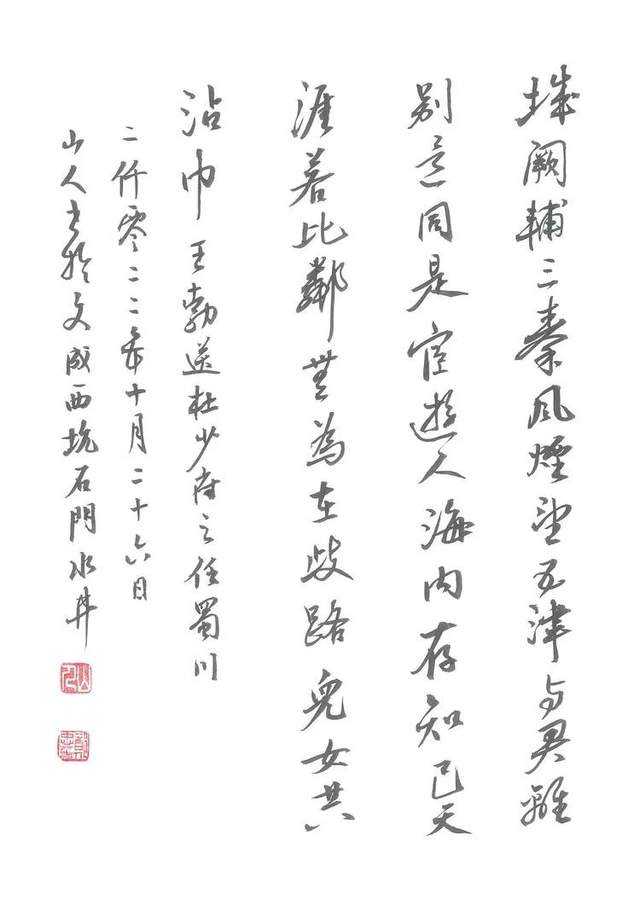 城阙輔三秦風煙望五津与君離
别意同是宦遊人海内存知己天
涯若比鄰無為在歧路兒女共
沾巾 王勃送杜少府之任蜀川
二仟零二二年十月二十六日
山人书於文成西坑石門水井